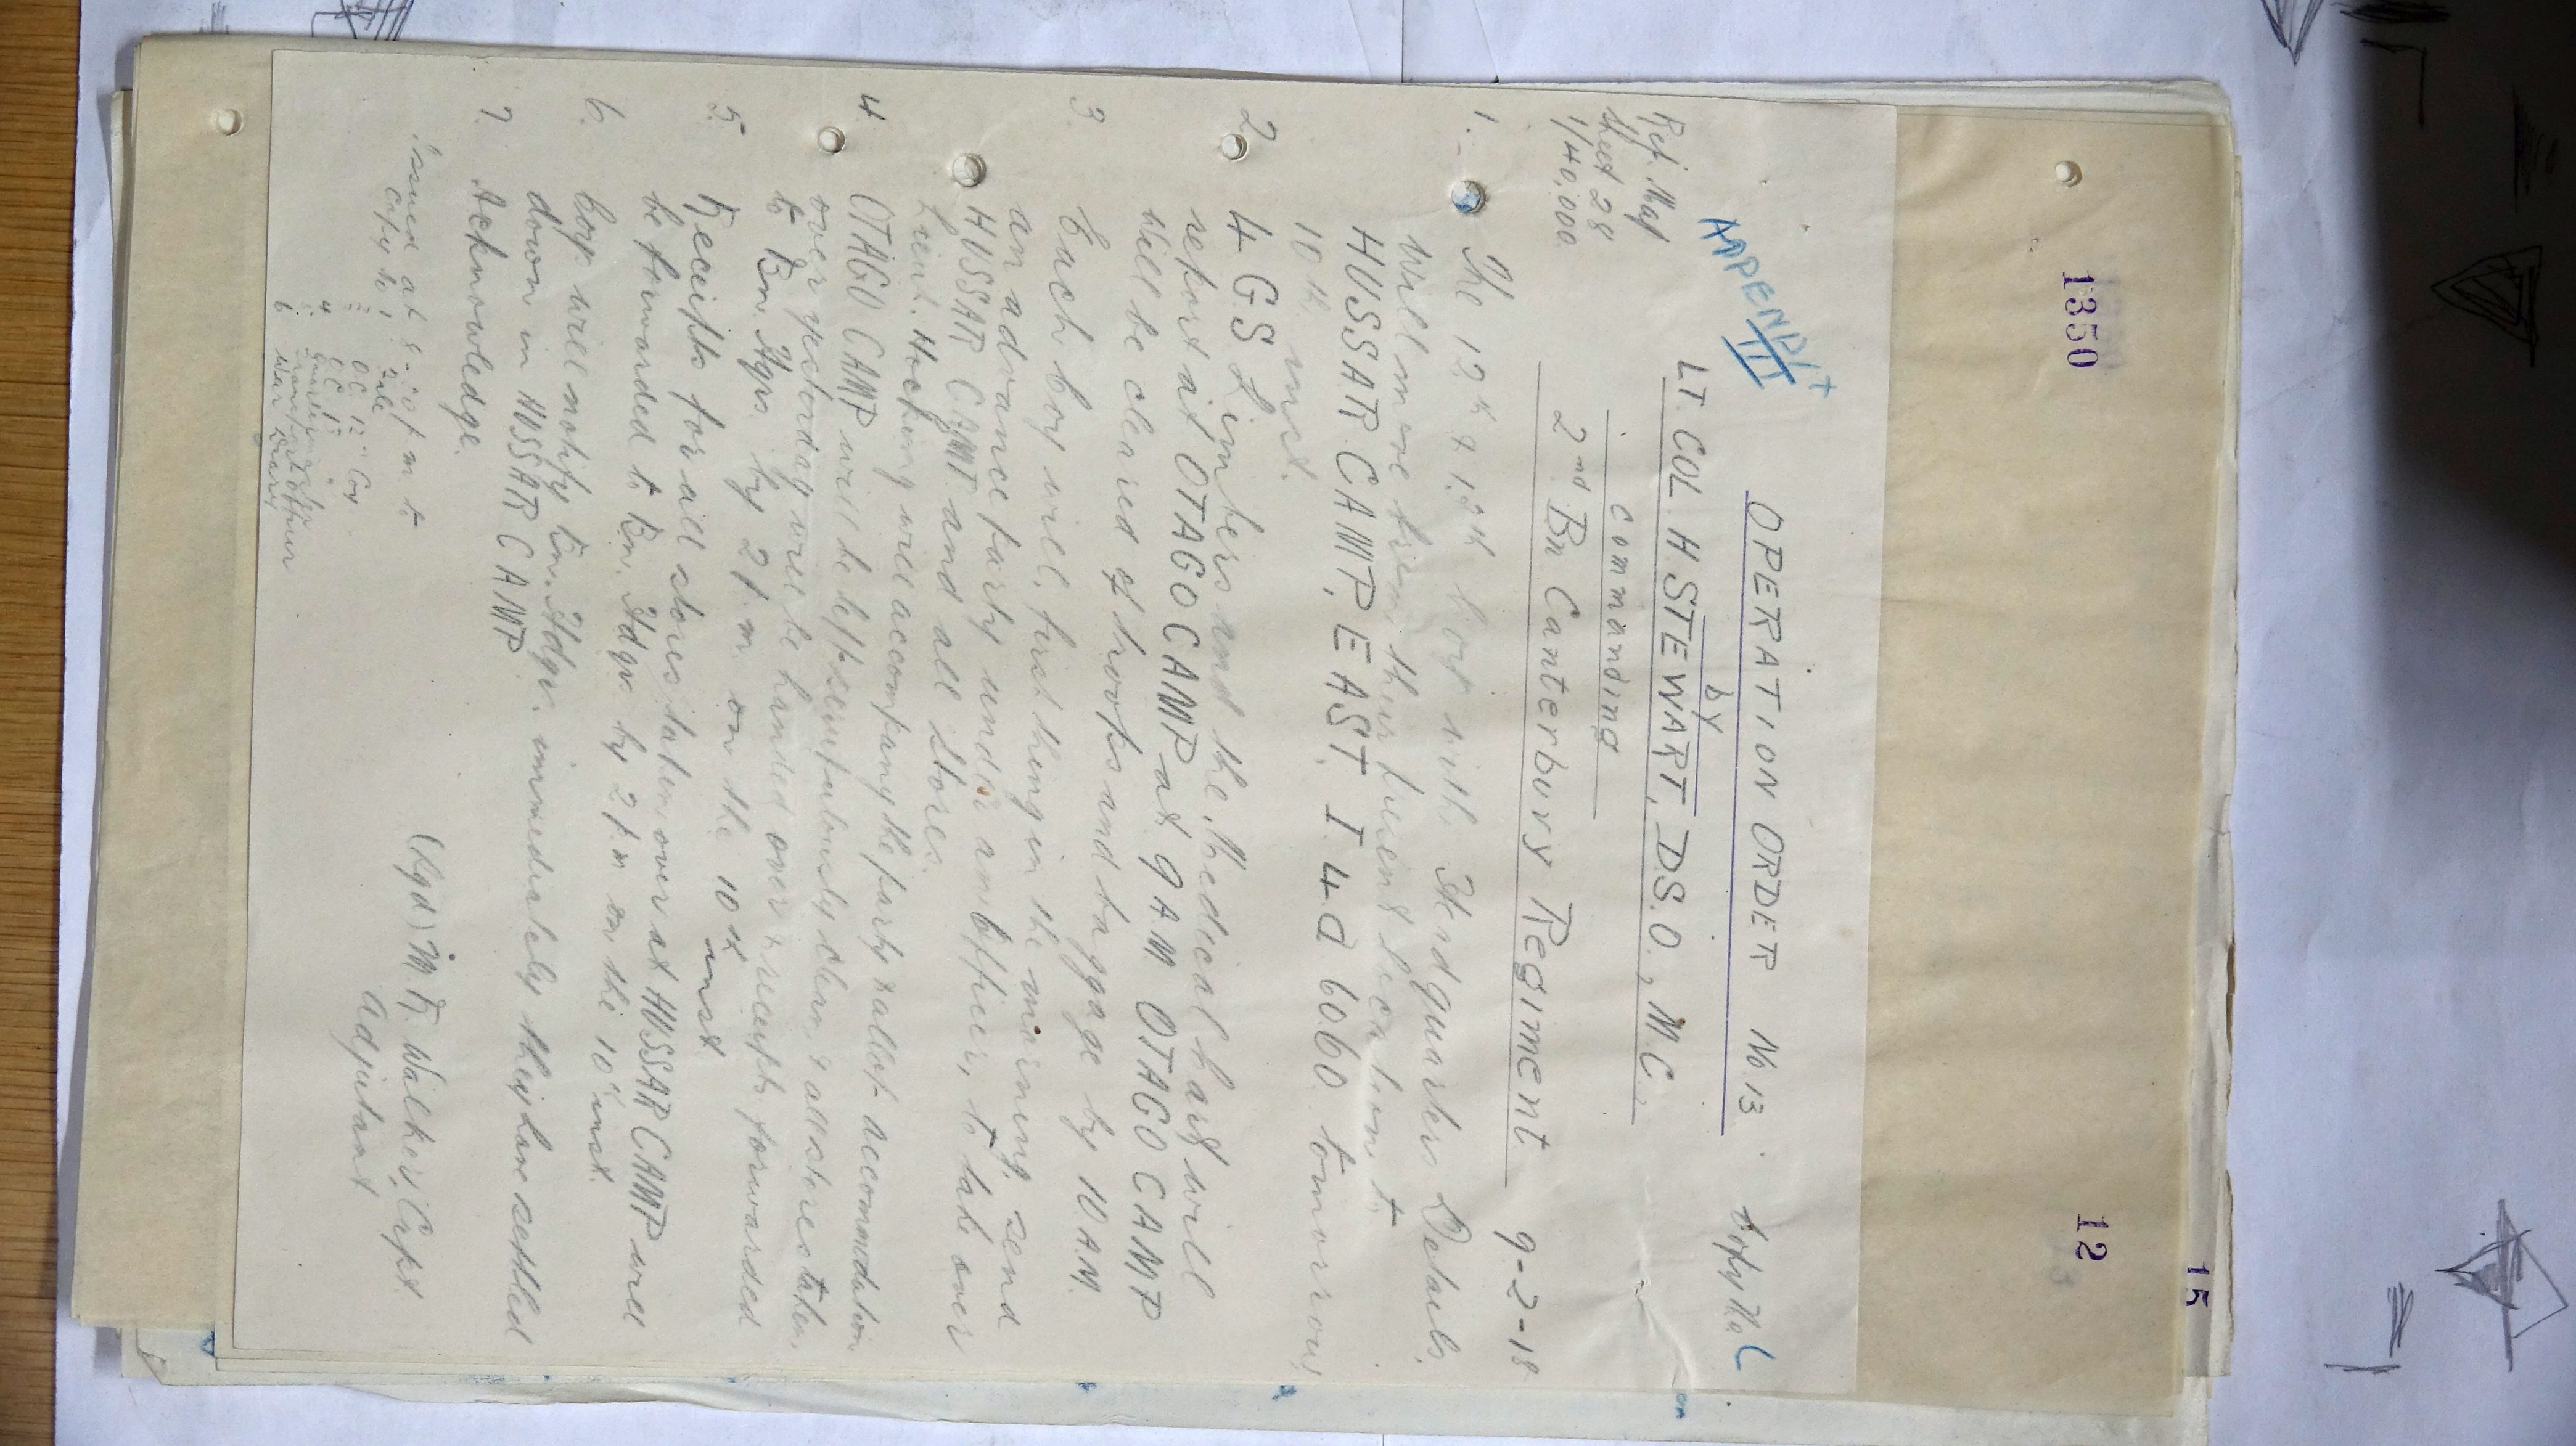 1350
12
15
APPENDIX
III
OPERATION ORDER No 13.
Copy No 6
by
LT. COL. H STEWART, D.S.O., M.C.
commanding
2nd Bn Canterbury Regiment.
9-2-18
Ref. Map
Sheet 28
1/40,000
1. The 12th & 13th Coys with Headquarters Details,
will move from their present location to
HUSSAR CAMP, EAST, I.4.d 60.60. tomorrow,
10th inst.
2 4 GS Limbers and the Medical Cart will
report at OTAGO CAMP at 9 AM OTAGO CAMP
will be cleared of troops and baggage by 10 A.M.
3. Each Coy will, first thing in the morning, send
an advance party under an Officer, to take over
HUSSAR CAMP and all stores.
Lieut. Hocking will accompany the party & allot accommodation
4 OTAGO CAMP will be left scrupulously clean, & all stores taken
over yesterday will be handed over & receipts forwarded
to Bn. Hqrs by 2 p.m. on the 10th inst.
5. Receipts for all stores taken over at HUSSAR CAMP will
be forwarded to Bn. Hdqrs by 2 p.m on the 10th inst.
6. Coys will notify Bn. Hdqrs. immediately they have settled
down in HUSSAR CAMP.
7. Acknowledge.
(Sgd) M R Walker, Capt.
Adjutant
Issued at 8-30 p m to
Copy No 1 File
2 OC 12th Coy
3 OC 13
4 Quartermaster
5 Transport Officer
6 War Diary